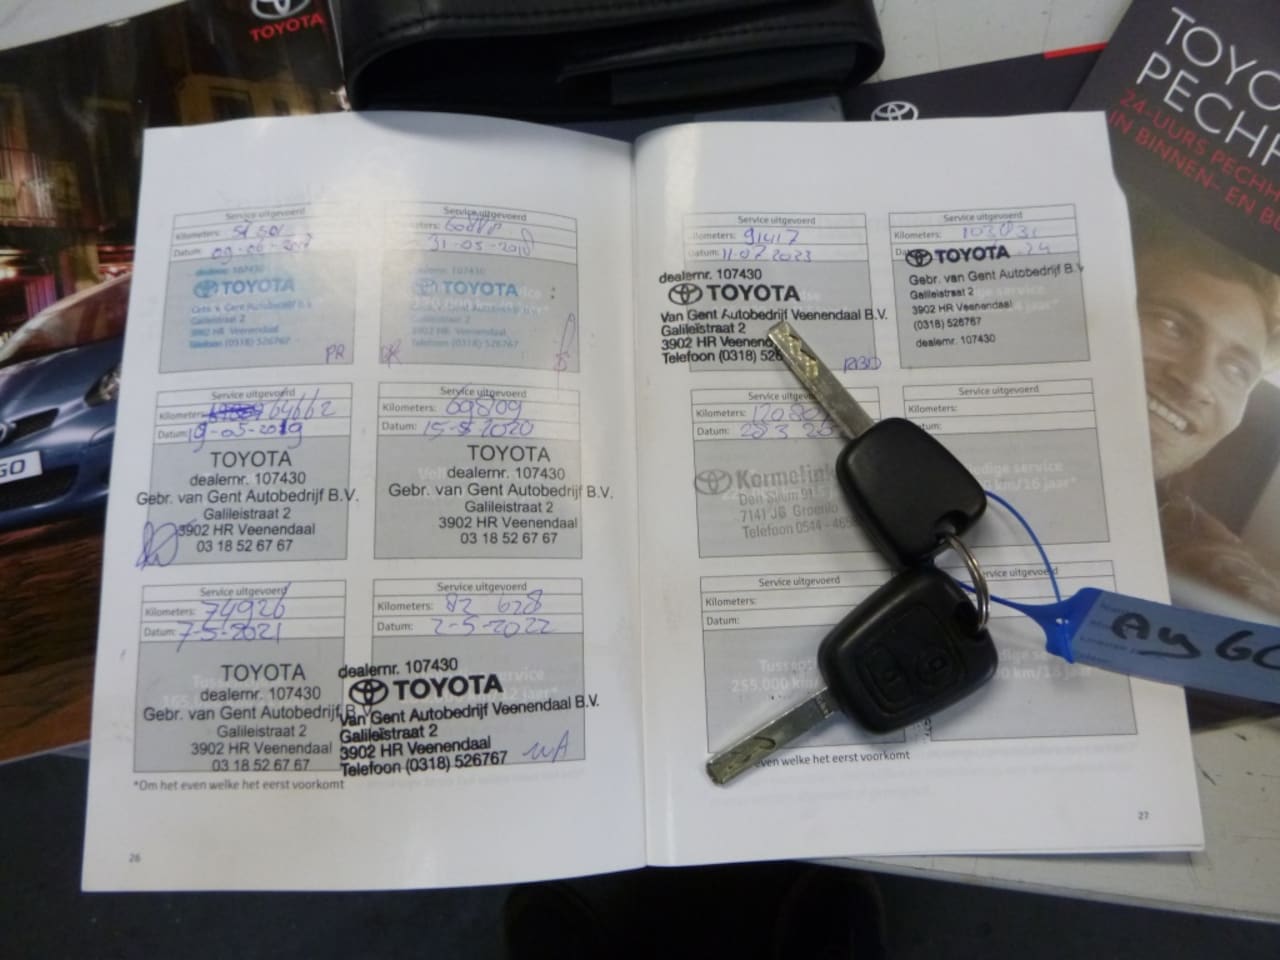 TOYOTA
TOYO
PECHH
24-UURS PECHH
IN BINNEN- EN B
GO
Service uitgevoerd
Kilometers:
Datum:
dealernr. 107430
TOYOTA
Galileistraat 2
3902 HR Veenendaal
Telefoon (0318) 526767
PR
Service uitgevoerd
Kilometers:
31-05-2018
dealernr. 107430
TOYOTA
Galileistraat 2
3902 HR Veenendaal
Telefoon (0318) 526767
Service uitgevoerd
Kilometers: 64662
Datum: 9-05-2019
TOYOTA
dealernr. 107430
Gebr. van Gent Autobedrijf B.V.
Galileistraat 2
3902 HR Veenendaal
03 18 52 67 67
Service uitgevoerd
Kilometers: 69809
Datum: 15-5-2020
TOYOTA
dealernr. 107430
Gebr. van Gent Autobedrijf B.V.
Galileistraat 2
3902 HR Veenendaal
03 18 52 67 67
Service uitgevoerd
Kilometers: 74926
Datum: 7-5-2021
TOYOTA
dealernr. 107430
Gebr. van Gent Autobedrijf B.V.
Galileistraat 2
3902 HR Veenendaal
03 18 52 67 67
Service uitgevoerd
Kilometers: 82 628
Datum: 2-5-2022
dealernr. 107430
TOYOTA
Van Gent Autobedrijf Veenendaal B.V.
Galileistraat 2
3902 HR Veenendaal
Telefoon (0318) 526767
*Om het even welke het eerst voorkomt
26
Service uitgevoerd
Kilometers: 91417
Datum: 11-07-2023
dealernr. 107430
TOYOTA
Van Gent Autobedrijf Veenendaal B.V.
Galileistraat 2
3902 HR Veenend
Telefoon (0318) 526
Service uitgevoerd
Kilometers:
24
TOYOTA
Gebr. van Gent Autobedrijf B.V.
Galileistraat 2
3902 HR Veenendaal
(0318) 526767
dealernr. 107430
Service uitgevoerd
Kilometers:
Datum:
Kormelink
7141 JG Groenlo
Telefoon 0544 - 46
Service uitgevoerd
Kilometers:
ledige service
km/16 jaar*
Service uitgevoerd
Kilometers:
Datum:
255.000 km/
Service uitgevoerd
even welke het eerst voorkomt
27
AyGO